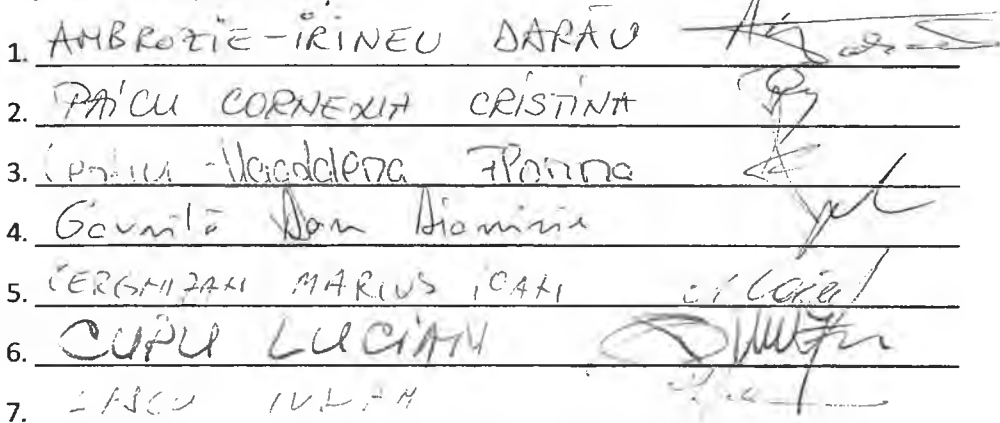 1. AMBROZIE-IRINEU DARĂU
2. PAICU CORNELIA CRISTINA
3. Magdalena
4. Gavrilă Dan Dionisie
5. CERGHIZAN MARIUS IOAN
6. CUPU LUCIAN
7. IULIAN